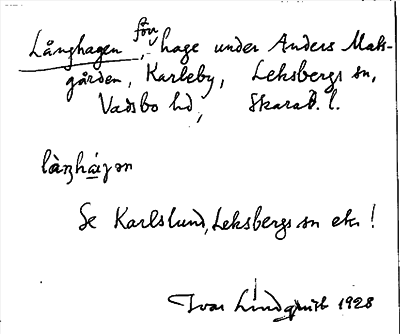 Långhagen, förr hage under Anders Mats-
gården, Karleby, Leksbergs sn,
Vadsbo hd, Skarab. l.
Se Karlslund, Leksbergs sn etc!
Ivar Lindquist 1928